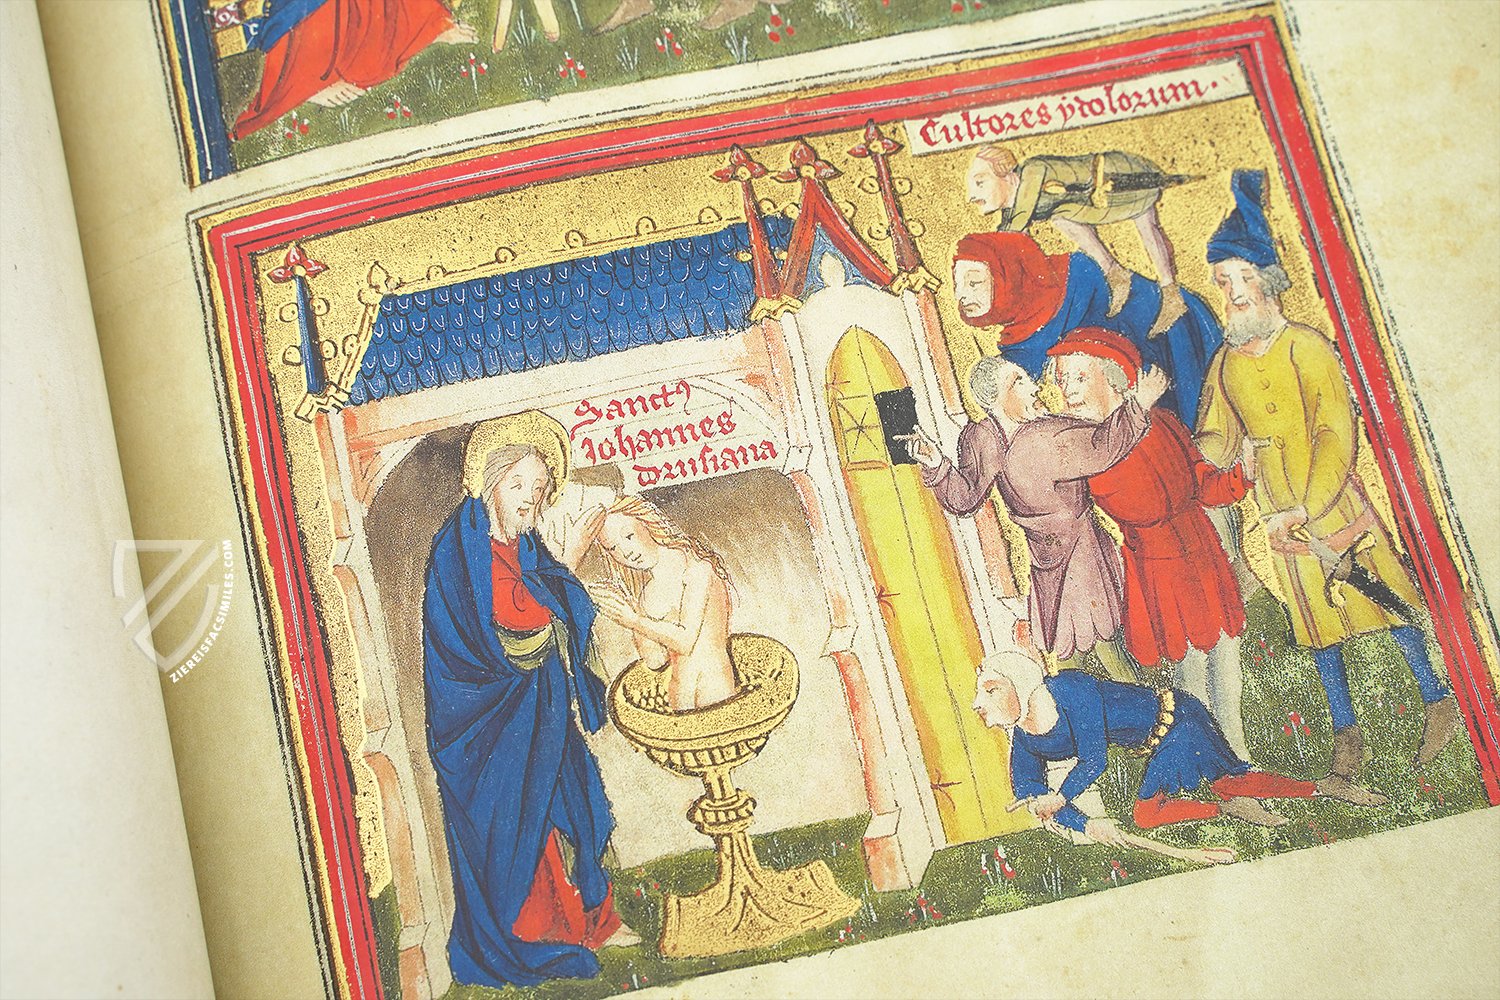 Cultores ydolorum.
Sanctꝰ
Johannes
drusiana
ZIEREISFACSIMILES.COM